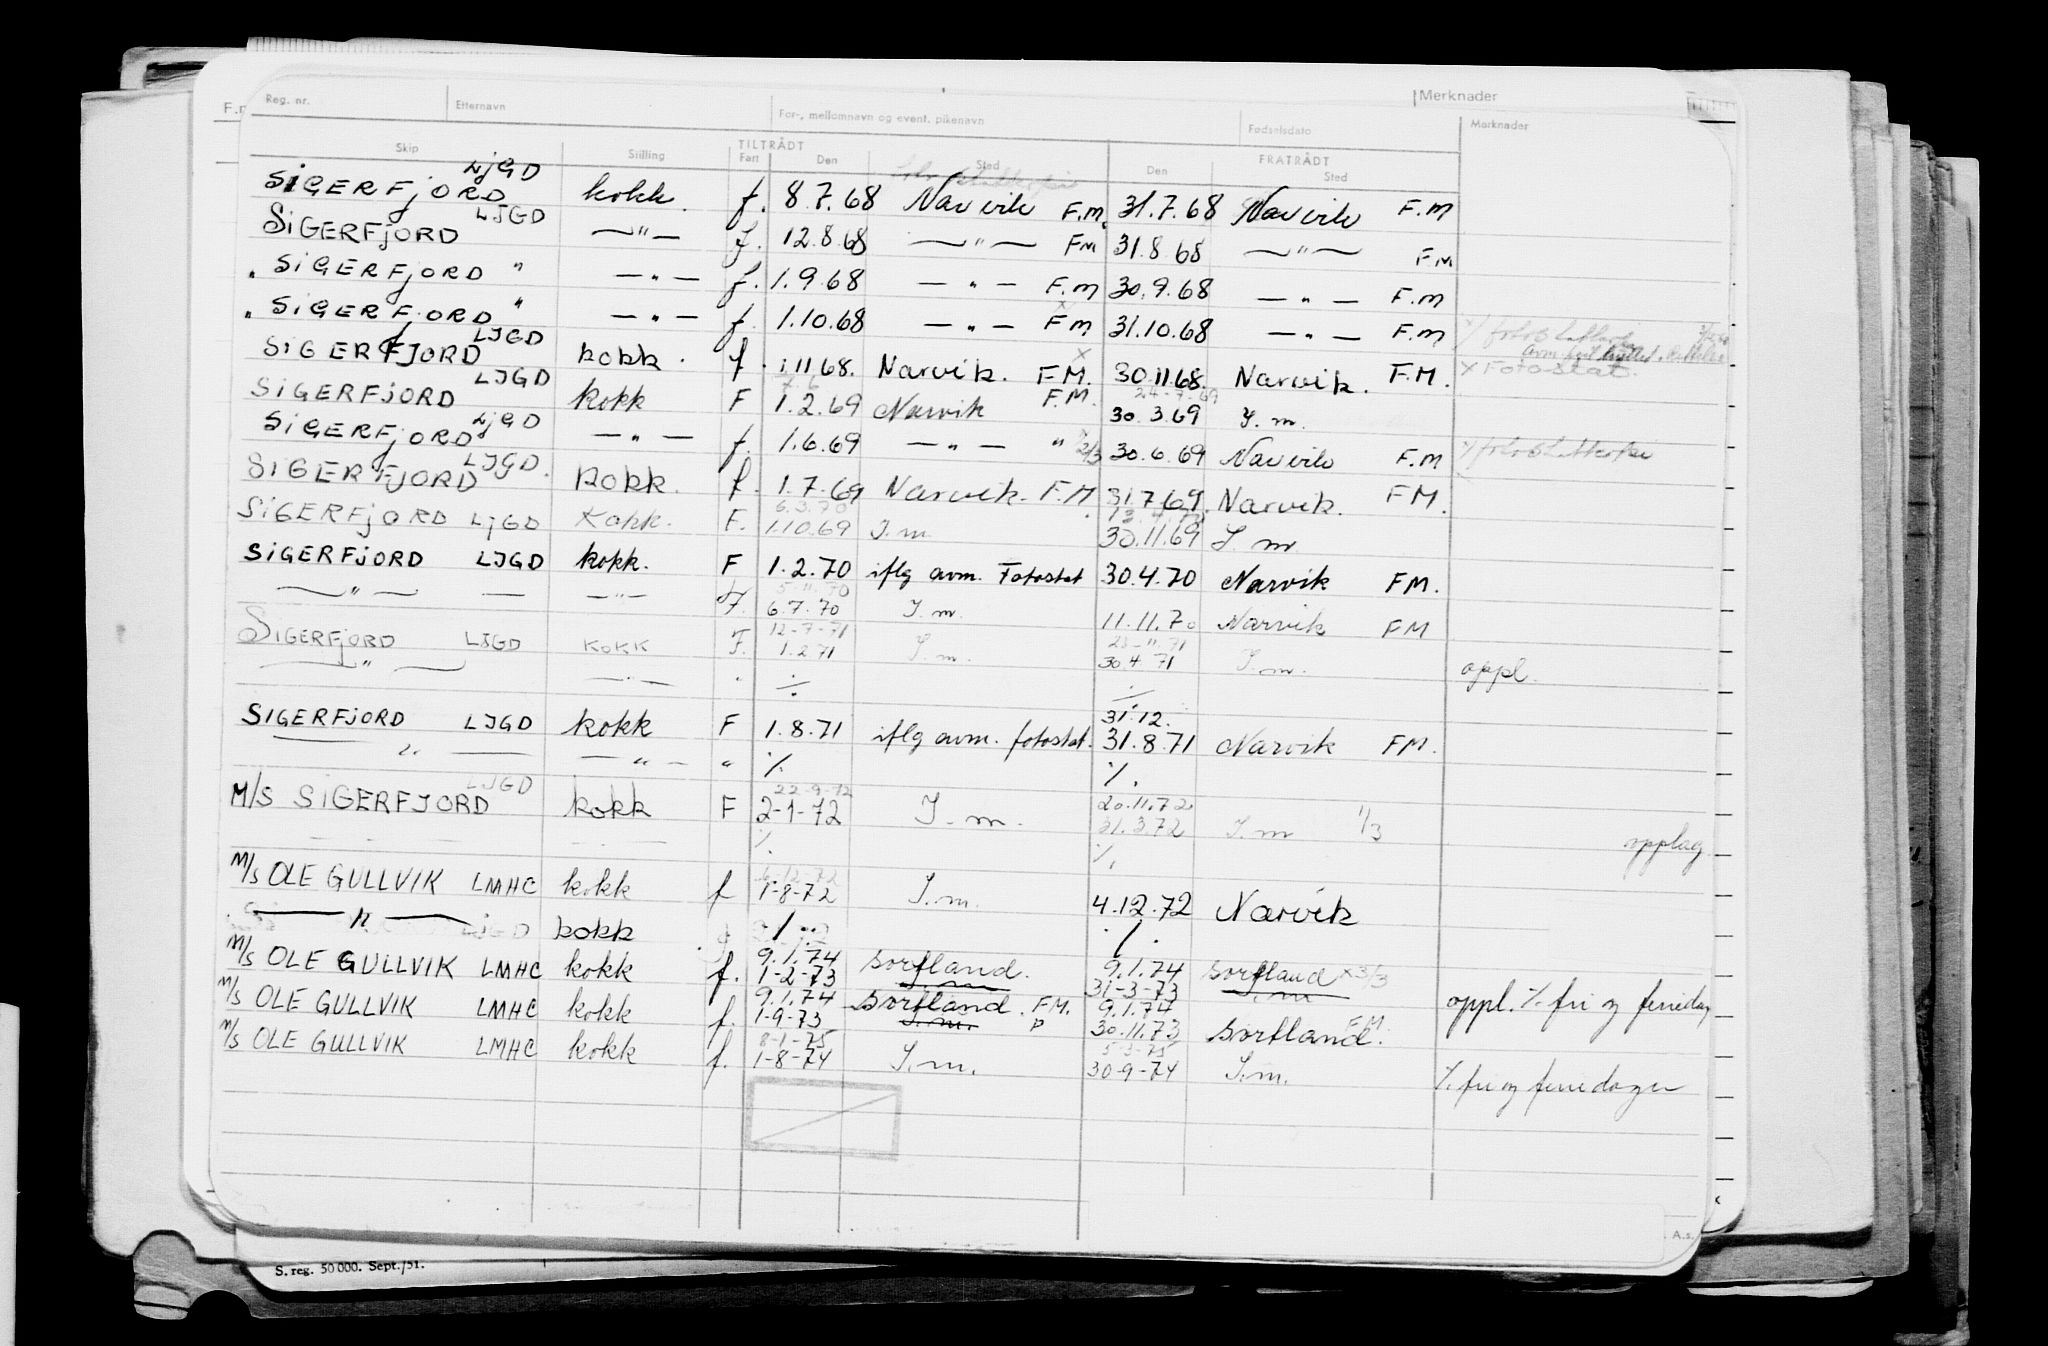 F.n
Merknader
Reg. nr. Etternavn For-, mellomnavn og event. pikenavn Fødselsdato Merknader
TILTRÅDT FRATRÅDT
Skip Stilling Fart Den Sted Den Sted
SIGERFJORD LJGD kokk. f. 8.7.68 Narvik F.M. 31.7.68 Narvik F.M
SIGERFJORD LJGD — " — f. 12.8.68 — " — FM 31.8.68 — " — FM
" SIGERFJORD " — " — f. 1.9.68 — " — F.M 30.9.68 — " — F.M
" SIGERFJORD " — " — f. 1.10.68 — " — x FM 31.10.68 — " — F.M
SIGERFJORD LJGD kokk. f. 1.11 68. Narvik. x F.M. 30.11 68. Narvik. F.M. x Fotostat.
7.6 24-7-69
SIGERFJORD LJGD kokk F 1.2.69 Narvik F.M. 30.3.69 I.m.
SIGERFJORD LJGD — " — f. 1.6.69 — " — " 2/3 30.6.69 Narvik F.M
SIGERFJORD LJGD. kokk. f. 1.7.69 Narvik. F.M 31.7.69. Narvik. FM.
6.3.70
SIGERFJORD LJGD Kokk. F. 1.10.69 I.m. 30.11.69 I.m
SIGERFJORD LJGD kokk. F 1.2.70 iflg avm. Fotostat 30.4.70 Narvik FM.
5.11.70
— " — — — " — F. 6.7.70 I.m. 11.11.70 Narvik FM
12-7-71 23-11.71
SIGERFJORD LJGD KOKK F. 1.2.71 I.m. 30.4.71 I.m. oppl.
— " — — " — " ./. ./.
31.12.
SIGERFJORD LJGD kokk F 1.8.71 iflg avm. fotostat. 31.8.71 Narvik FM.
— " — — " — " ./. ./.
22-9-72 20.11.72
M/S SIGERFJORD LJGD kokk F 2-1-72 I.m. 31.3.72 I.m 1/3 opplag
./. ./.
6-12-72
M/S OLE GULLVIK LMHC kokk f 1-8-72 I.m. 4.12.72 Narvik
— " — kokk ./. ./.
9.1.74 9.1.74
M/S OLE GULLVIK LMHC kokk f. 1-2-73 Sortland. I.m. 31-3-73 Sortland x3/3 I.m oppl. ./. fri og feriedag
9.1.74 9.1.74
M/S OLE GULLVIK LMHC kokk f. 1-9-73 Sortland. FM. I.m. P 30.11.73 Sortland. F.M.
8-1-75 5-3-75
M/S OLE GULLVIK LMHC kokk f. 1-8-74 I.m. 30-9-74 I.m. ./. fri og feriedager
A.s.
S. reg. 50 000. Sept./51.